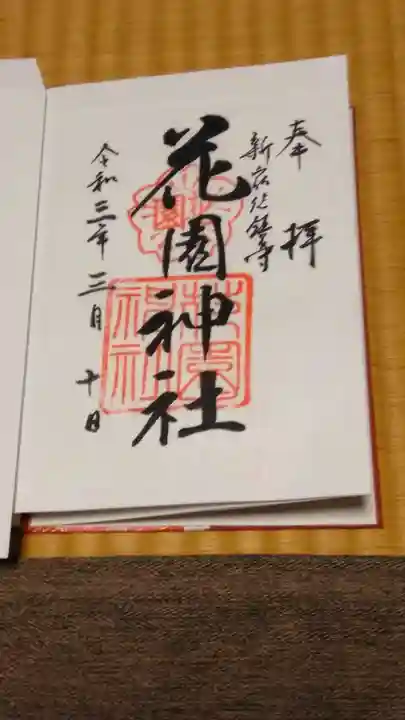 奉拝
新宿総鎮守
花園神社
花園神社
令和三年三月十日